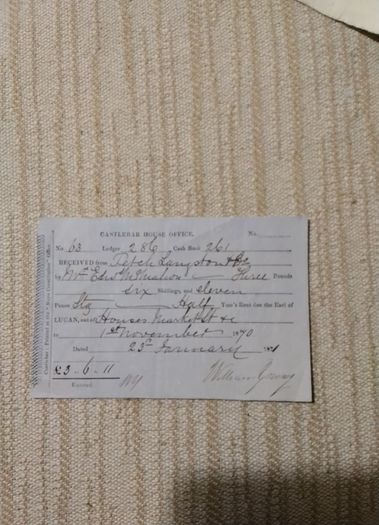 CASTLEBAR HOUSE OFFICE. No.
No. 63 Ledger 286 Cash Book 261
RECEIVED from Petch Langston
by Mr Edw McMahon Three Pounds
six Shillings, and eleven
Pence Stg Half Year's Rent due the Earl of
LUCAN, out of Houses Market St &c
to 1st November 1870
Dated 23rd January
£3-6-11
Entered.
William
Castlebar: Printed at the